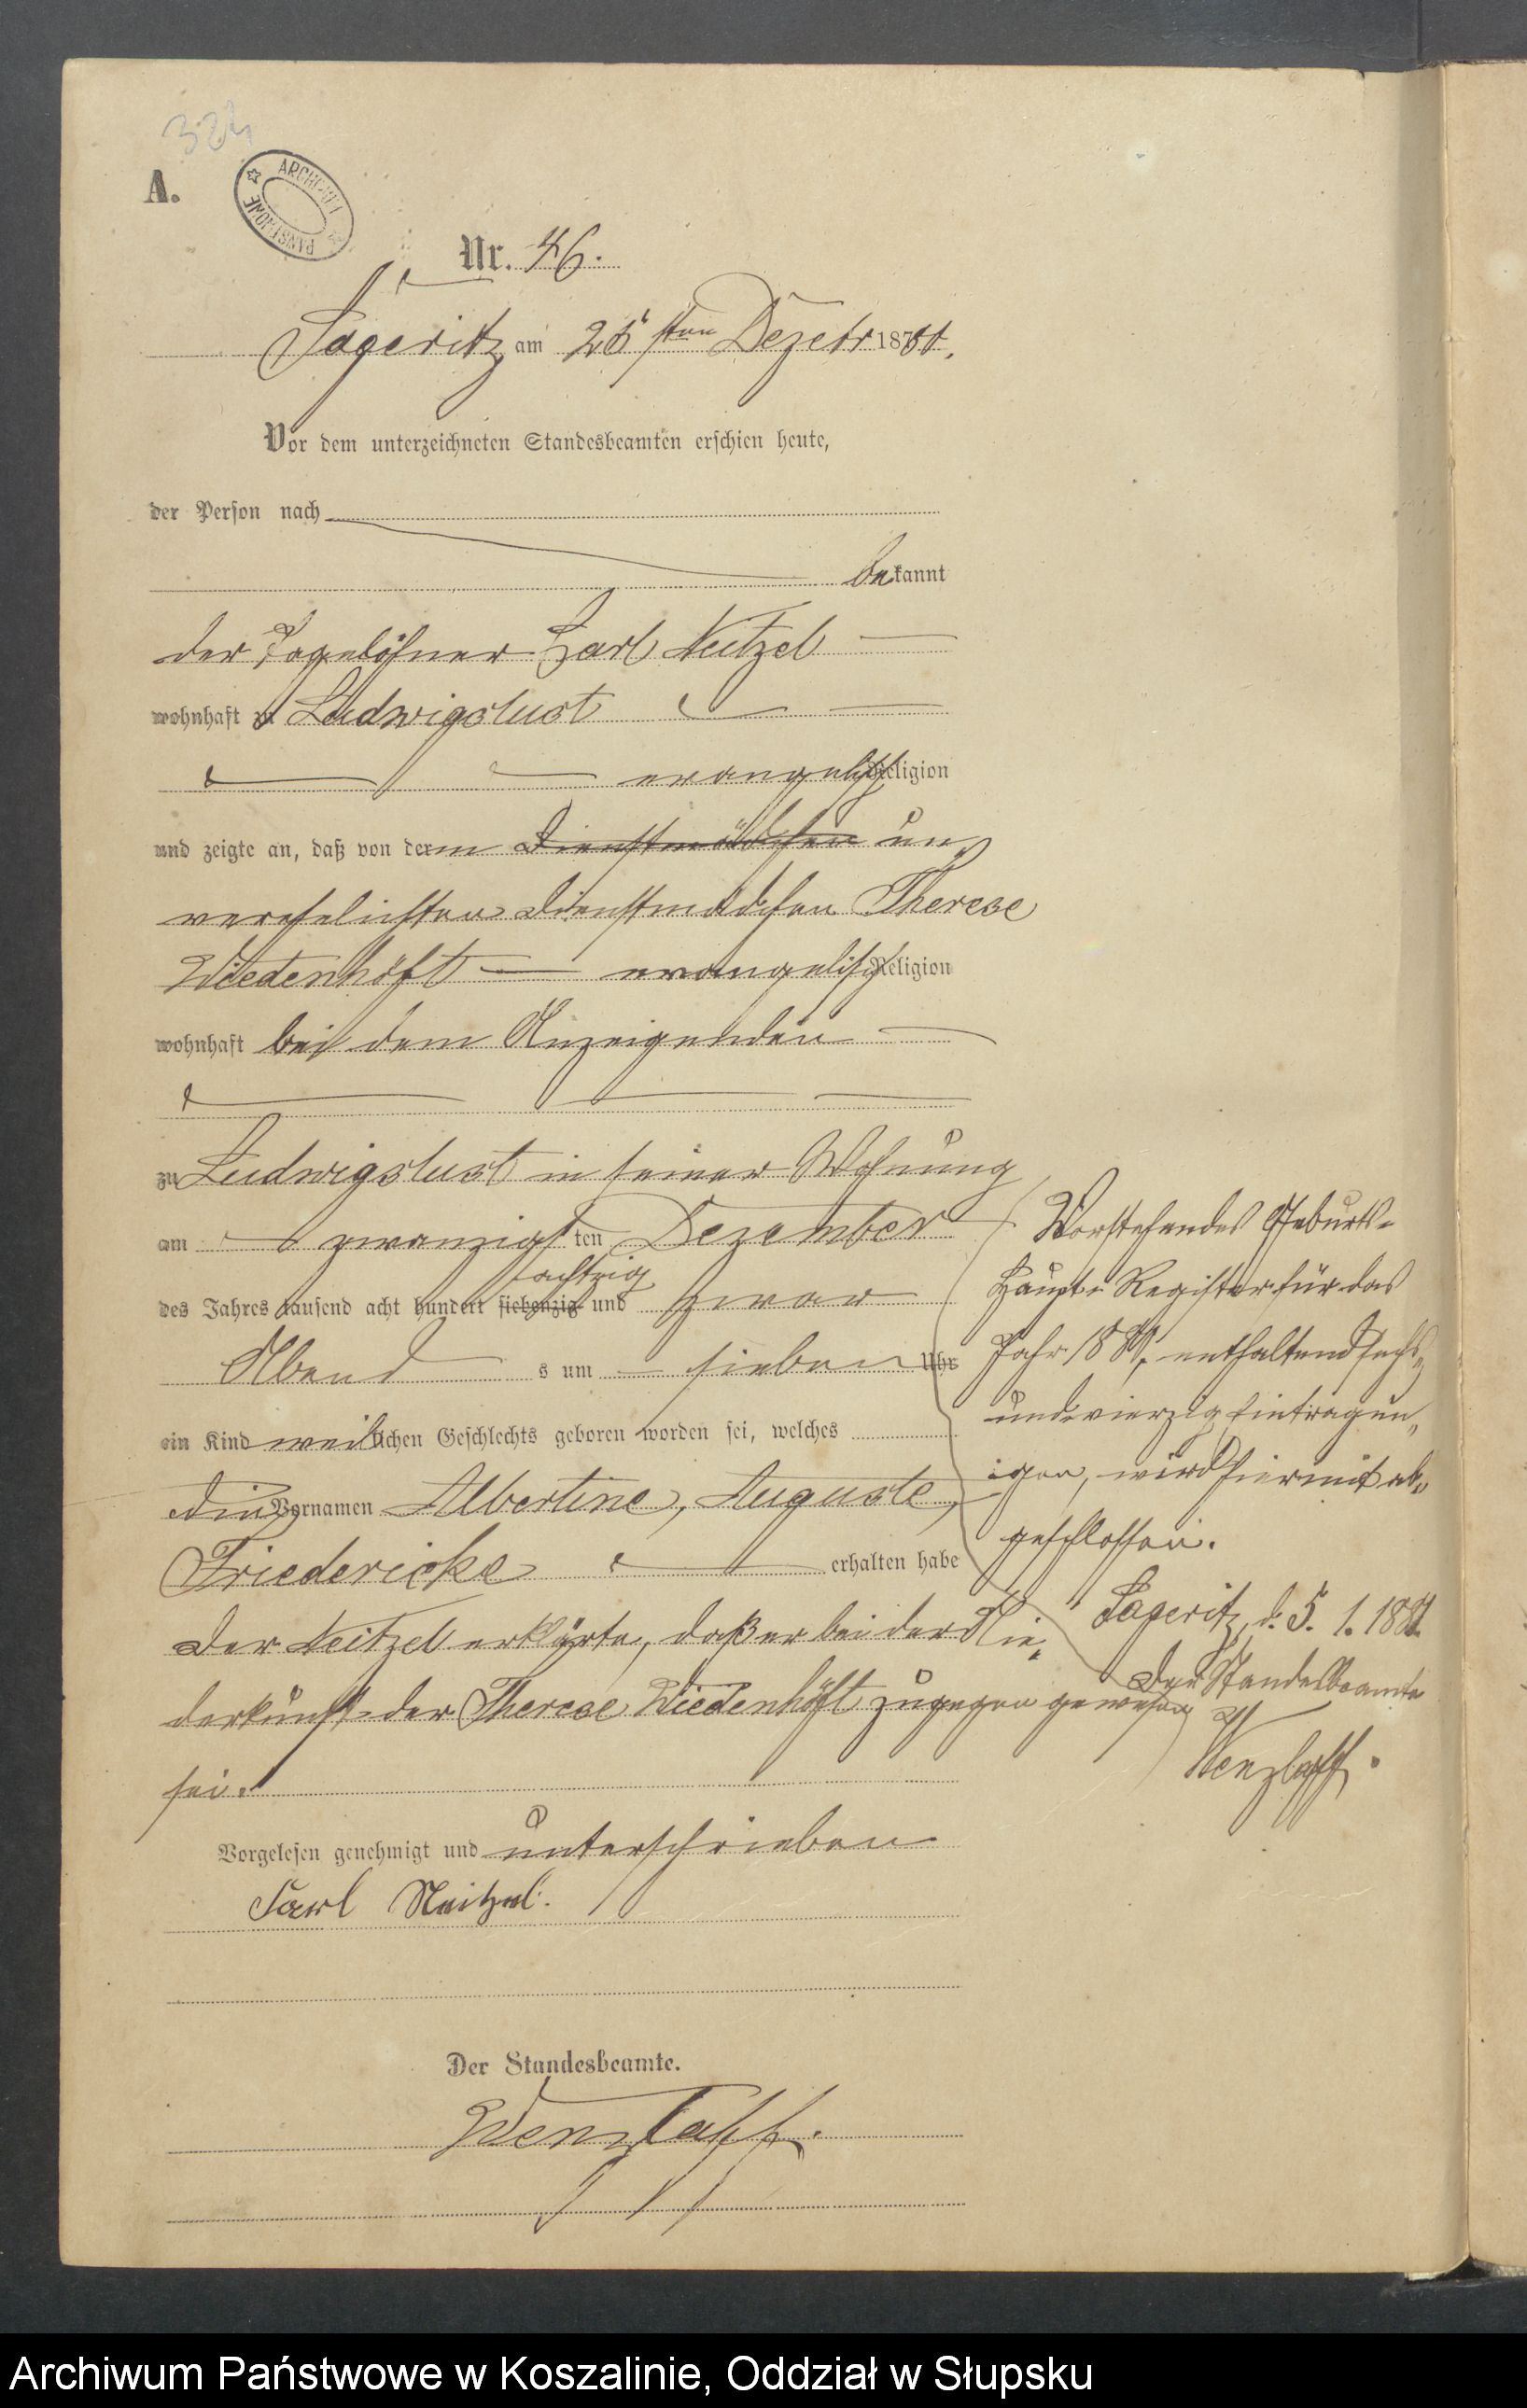 324
A.
ARCHIWUM PAŃSTWOWE
Nr. 46.
Sageritz am ten Dezebr 1880.
Vor dem unterzeichneten Standesbeamten erschien heute,
der Person nach
bekannt
der Tagelöhner Carl Neitzel
wohnhaft zu Ludwigslust
evangelisch Religion
und zeigte an, daß von der m Dienstmädchen un„
verehelichten Dienstmädchen Therese
Wiedenhöft evangelisch Religion
wohnhaft bei dem Anzeigenden
zu Ludwigslust in seiner Wohnung
am zwanzigsten Dezember
achtzig
des Jahres tausend acht hundert siebenzig und zwar
Abends um sieben Uhr
ein Kind weiblichen Geschlechts geboren worden sei, welches
die Vornamen Albertine, Auguste,
Friedericke erhalten habe
Der Neitzel erklärte, daß er bei der Nie„
derkunft der Therese Wiedenhöft zugegen gewesen
sei.
Vorgelesen genehmigt und unterschrieben
Carl Neitzel.
Der Standesbeamte.
Wenzlaff.
Vorstehendes Geburts-
Haupt-Register für das
Jahr 1880, enthaltend sechs„
undvierzig Eintragun„
gen, wird hiermit ab„
geschlossen.
Sageritz, d. 5. 1. 1881.
Der Standesbeamte
Wenzlaff.
Archiwum Państwowe w Koszalinie, Oddział w Słupsku